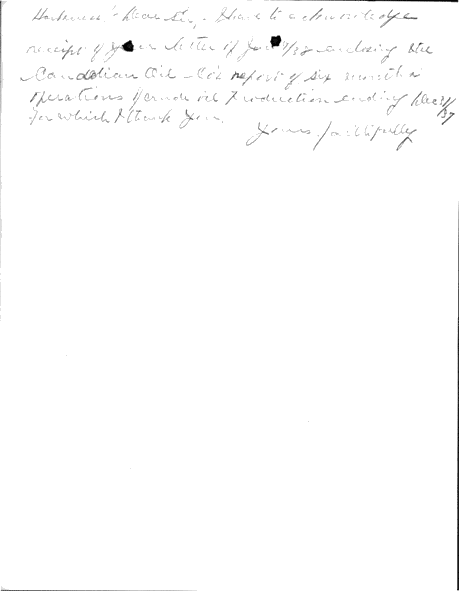 Harkness: Dear Sir, I have to acknowledge
receipt of your letter of Jan /38 enclosing the
Canadian Oil Co's report of six months
operations of crude oil production ending Dec 31/37
for which I thank you.
Yours faithfully